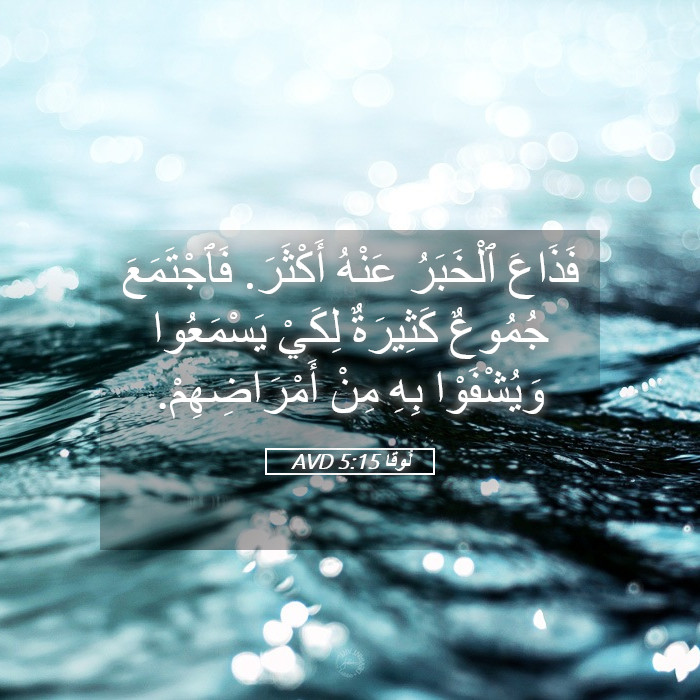 فَذَاعَ ٱلْخَبَرُ عَنْهُ أَكْثَرَ. فَٱجْتَمَعَ
جُمُوعٌ كَثِيرَةٌ لِكَيْ يَسْمَعُوا
وَيُشْفَوْا بِهِ مِنْ أَمْرَاضِهِمْ.
لُوقا 5:15 AVD